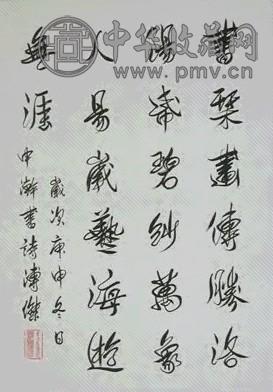 中华收藏网
www.pmv.cn
書琹畫傳勝洛
陽盛碧紗萬象
人易歲藝海遊
無涯
歲次庚申冬日
申翰書詩溥傑